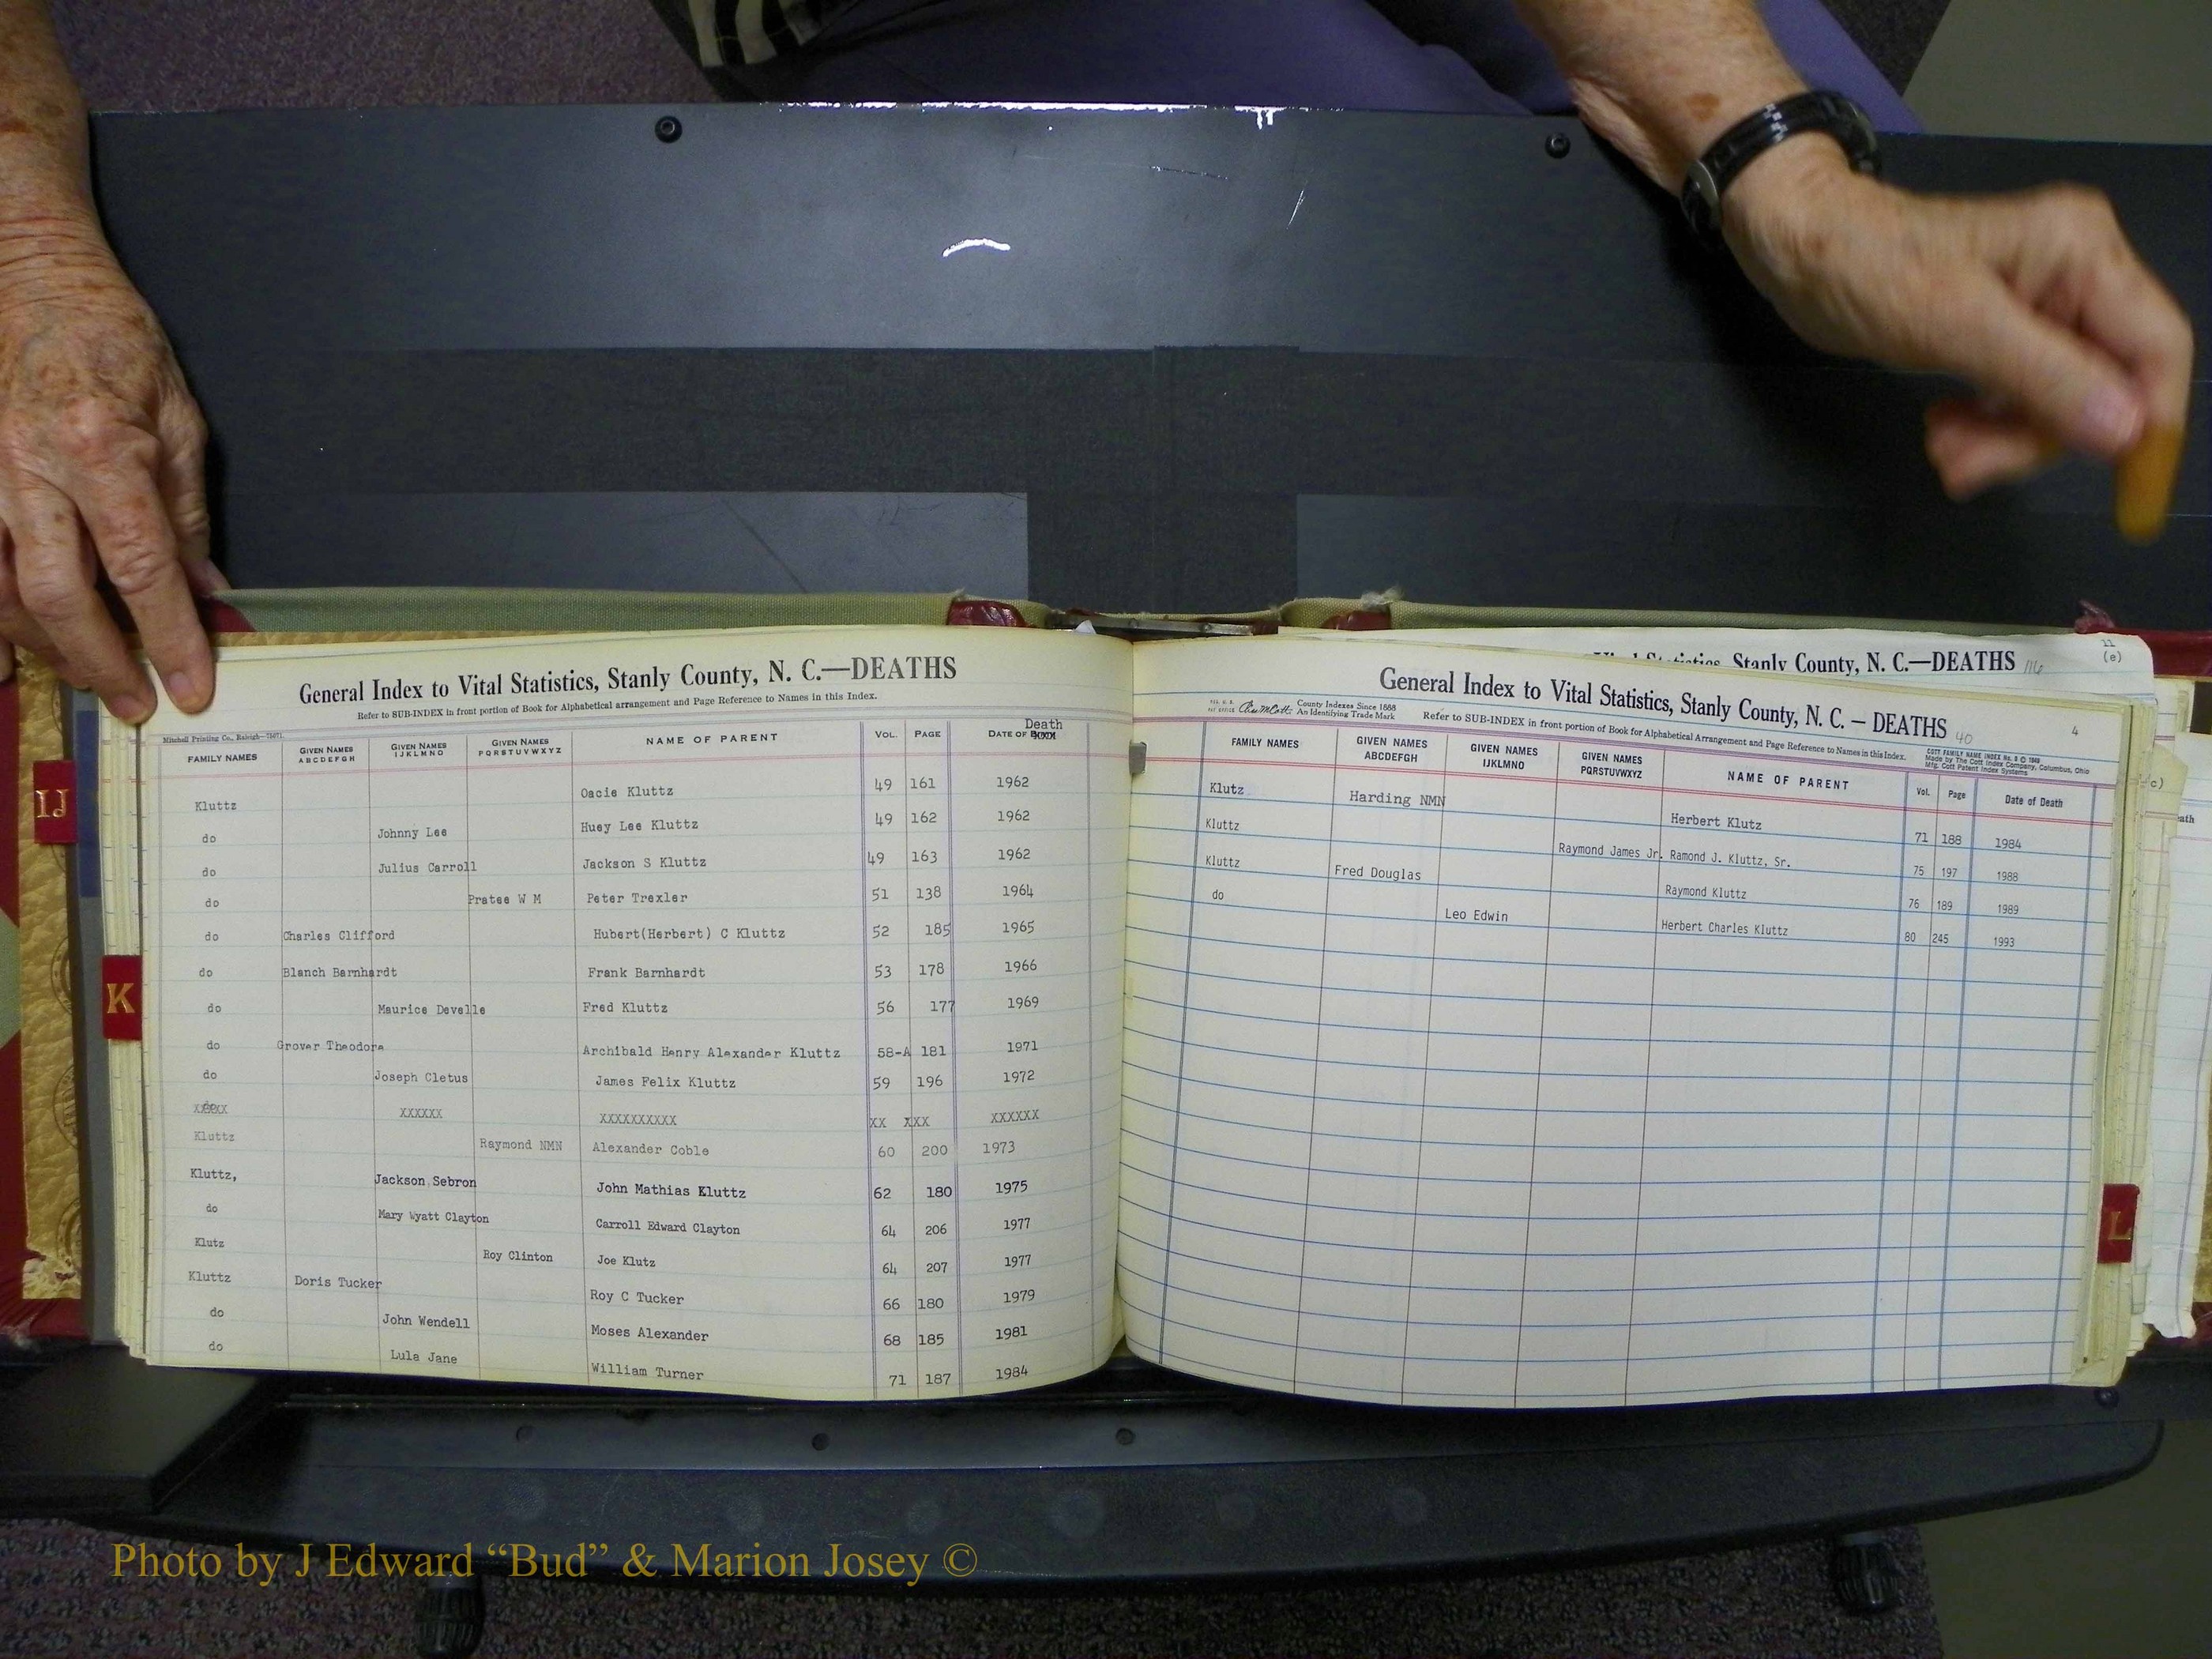 General Index to Vital Statistics, Stanly County, N. C.—DEATHS
Refer to SUB-INDEX in front portion of Book for Alphabetical arrangement and Page Reference to Names in this Index.
Mitchell Printing Co., Raleigh
FAMILY NAMES GIVEN NAMES ABCDEFGH GIVEN NAMES IJKLMNO GIVEN NAMES PQRSTUVWXYZ NAME OF PARENT VOL. PAGE DATE OF Death
Kluttz Oacie Kluttz 49 161 1962
do Johnny Lee Huey Lee Kluttz 49 162 1962
do Julius Carroll Jackson S Kluttz 49 163 1962
do Pratee W M Peter Trexler 51 138 1964
do Charles Clifford Hubert(Herbert) C Kluttz 52 185 1965
do Blanch Barnhardt Frank Barnhardt 53 178 1966
do Maurice Develle Fred Kluttz 56 177 1969
do Grover Theodore Archibald Henry Alexander Kluttz 58-A 181 1971
do Joseph Cletus James Felix Kluttz 59 196 1972
XXXXXX XXXXXXXXXX XX XXX XXXXXX
Kluttz Raymond NMN Alexander Coble 60 200 1973
Kluttz, Jackson Sebron John Mathias Kluttz 62 180 1975
do Mary Wyatt Clayton Carroll Edward Clayton 64 206 1977
Klutz Roy Clinton Joe Klutz 64 207 1977
Kluttz Doris Tucker Roy C Tucker 66 180 1979
do John Wendell Moses Alexander 68 185 1981
do Lula Jane William Turner 71 187 1984
IJ
K
Stanly County, N. C.—DEATHS 116
11
(e)
General Index to Vital Statistics, Stanly County, N. C. — DEATHS 40
4
County Indexes Since 1888
An Identifying Trade Mark
Refer to SUB-INDEX in front portion of Book for Alphabetical Arrangement and Page Reference to Names in this Index.
COTT FAMILY NAME INDEX No. 8 © 1949
Made by The Cott Index Company, Columbus, Ohio
Mfg. Cott Patent Index Systems
FAMILY NAMES GIVEN NAMES ABCDEFGH GIVEN NAMES IJKLMNO GIVEN NAMES PQRSTUVWXYZ NAME OF PARENT Vol. Page Date of Death
Klutz Harding NMN Herbert Klutz 71 188 1984
Kluttz Raymond James Jr. Ramond J. Kluttz, Sr. 75 197 1988
Kluttz Fred Douglas Raymond Kluttz 76 189 1989
do Leo Edwin Herbert Charles Kluttz 80 245 1993
L
Photo by J Edward “Bud” & Marion Josey ©